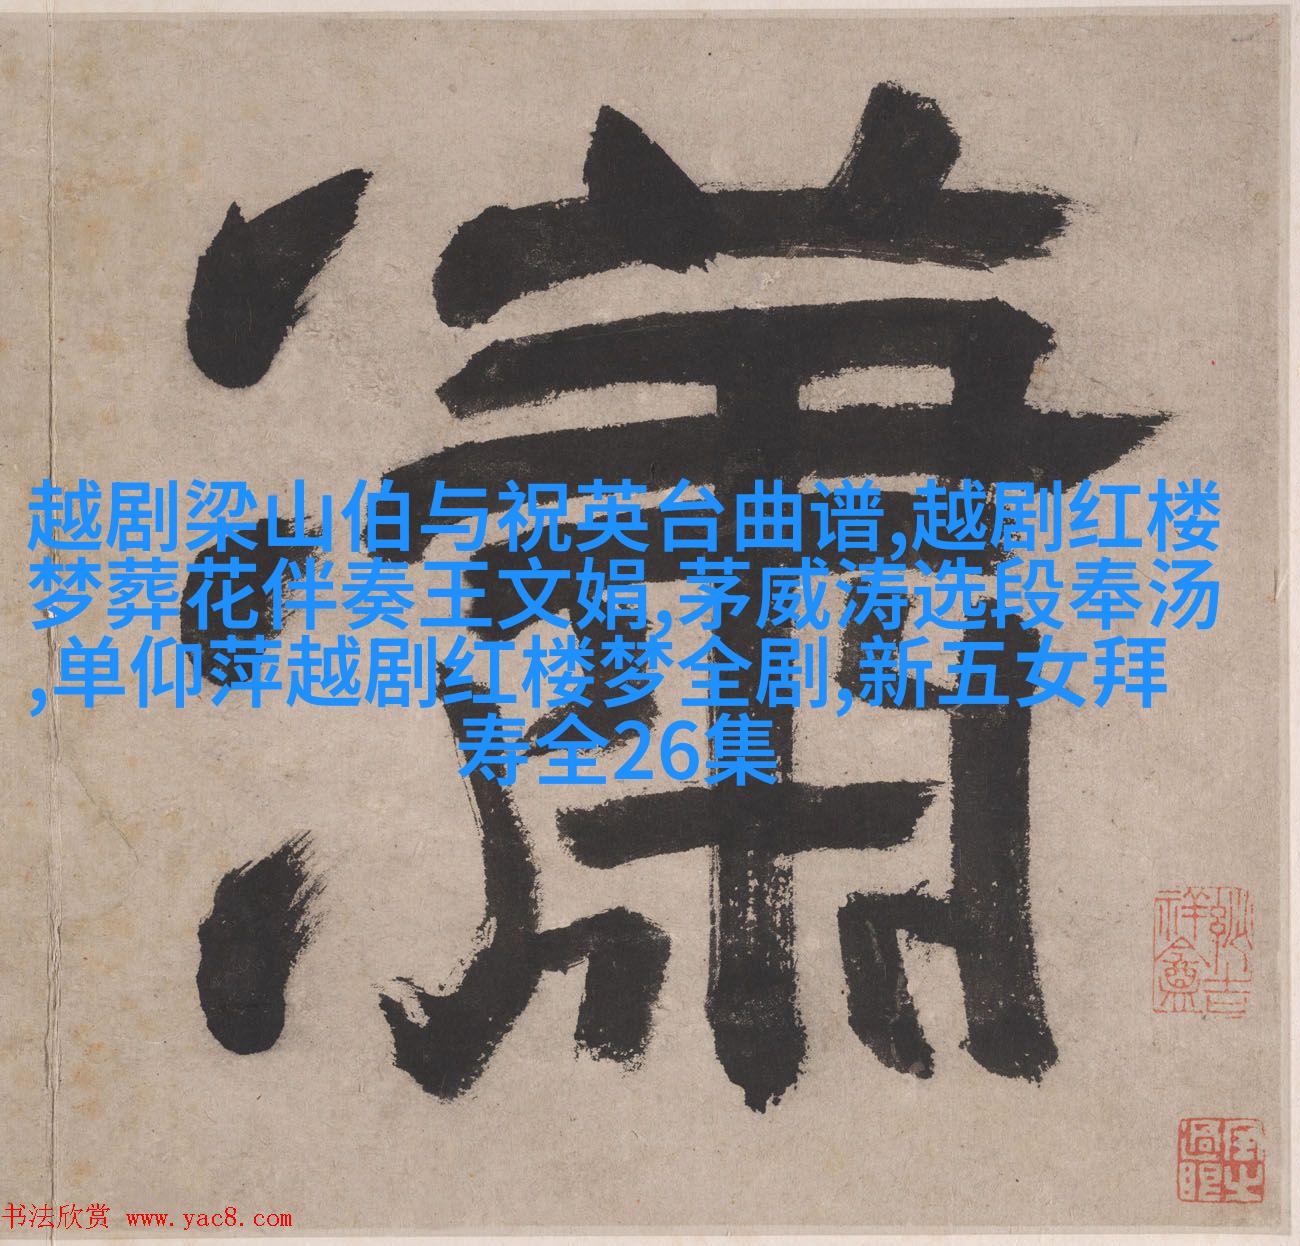 瀟
越剧梁山伯与祝英台曲谱,越剧红楼
梦葬花伴奏王文娟,茅威涛选段奉汤
,单仰萍越剧红楼梦全剧,新五女拜
寿全26集
书法欣赏 www.yac8.com